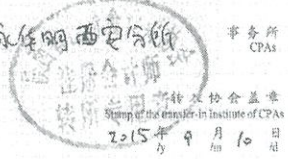 永华明西安分所
事务所
CPAs
转所专用章
转入协会盖章
Stamp of the transfer-in Institute of CPAs
2015年9月10日
/y /m /d